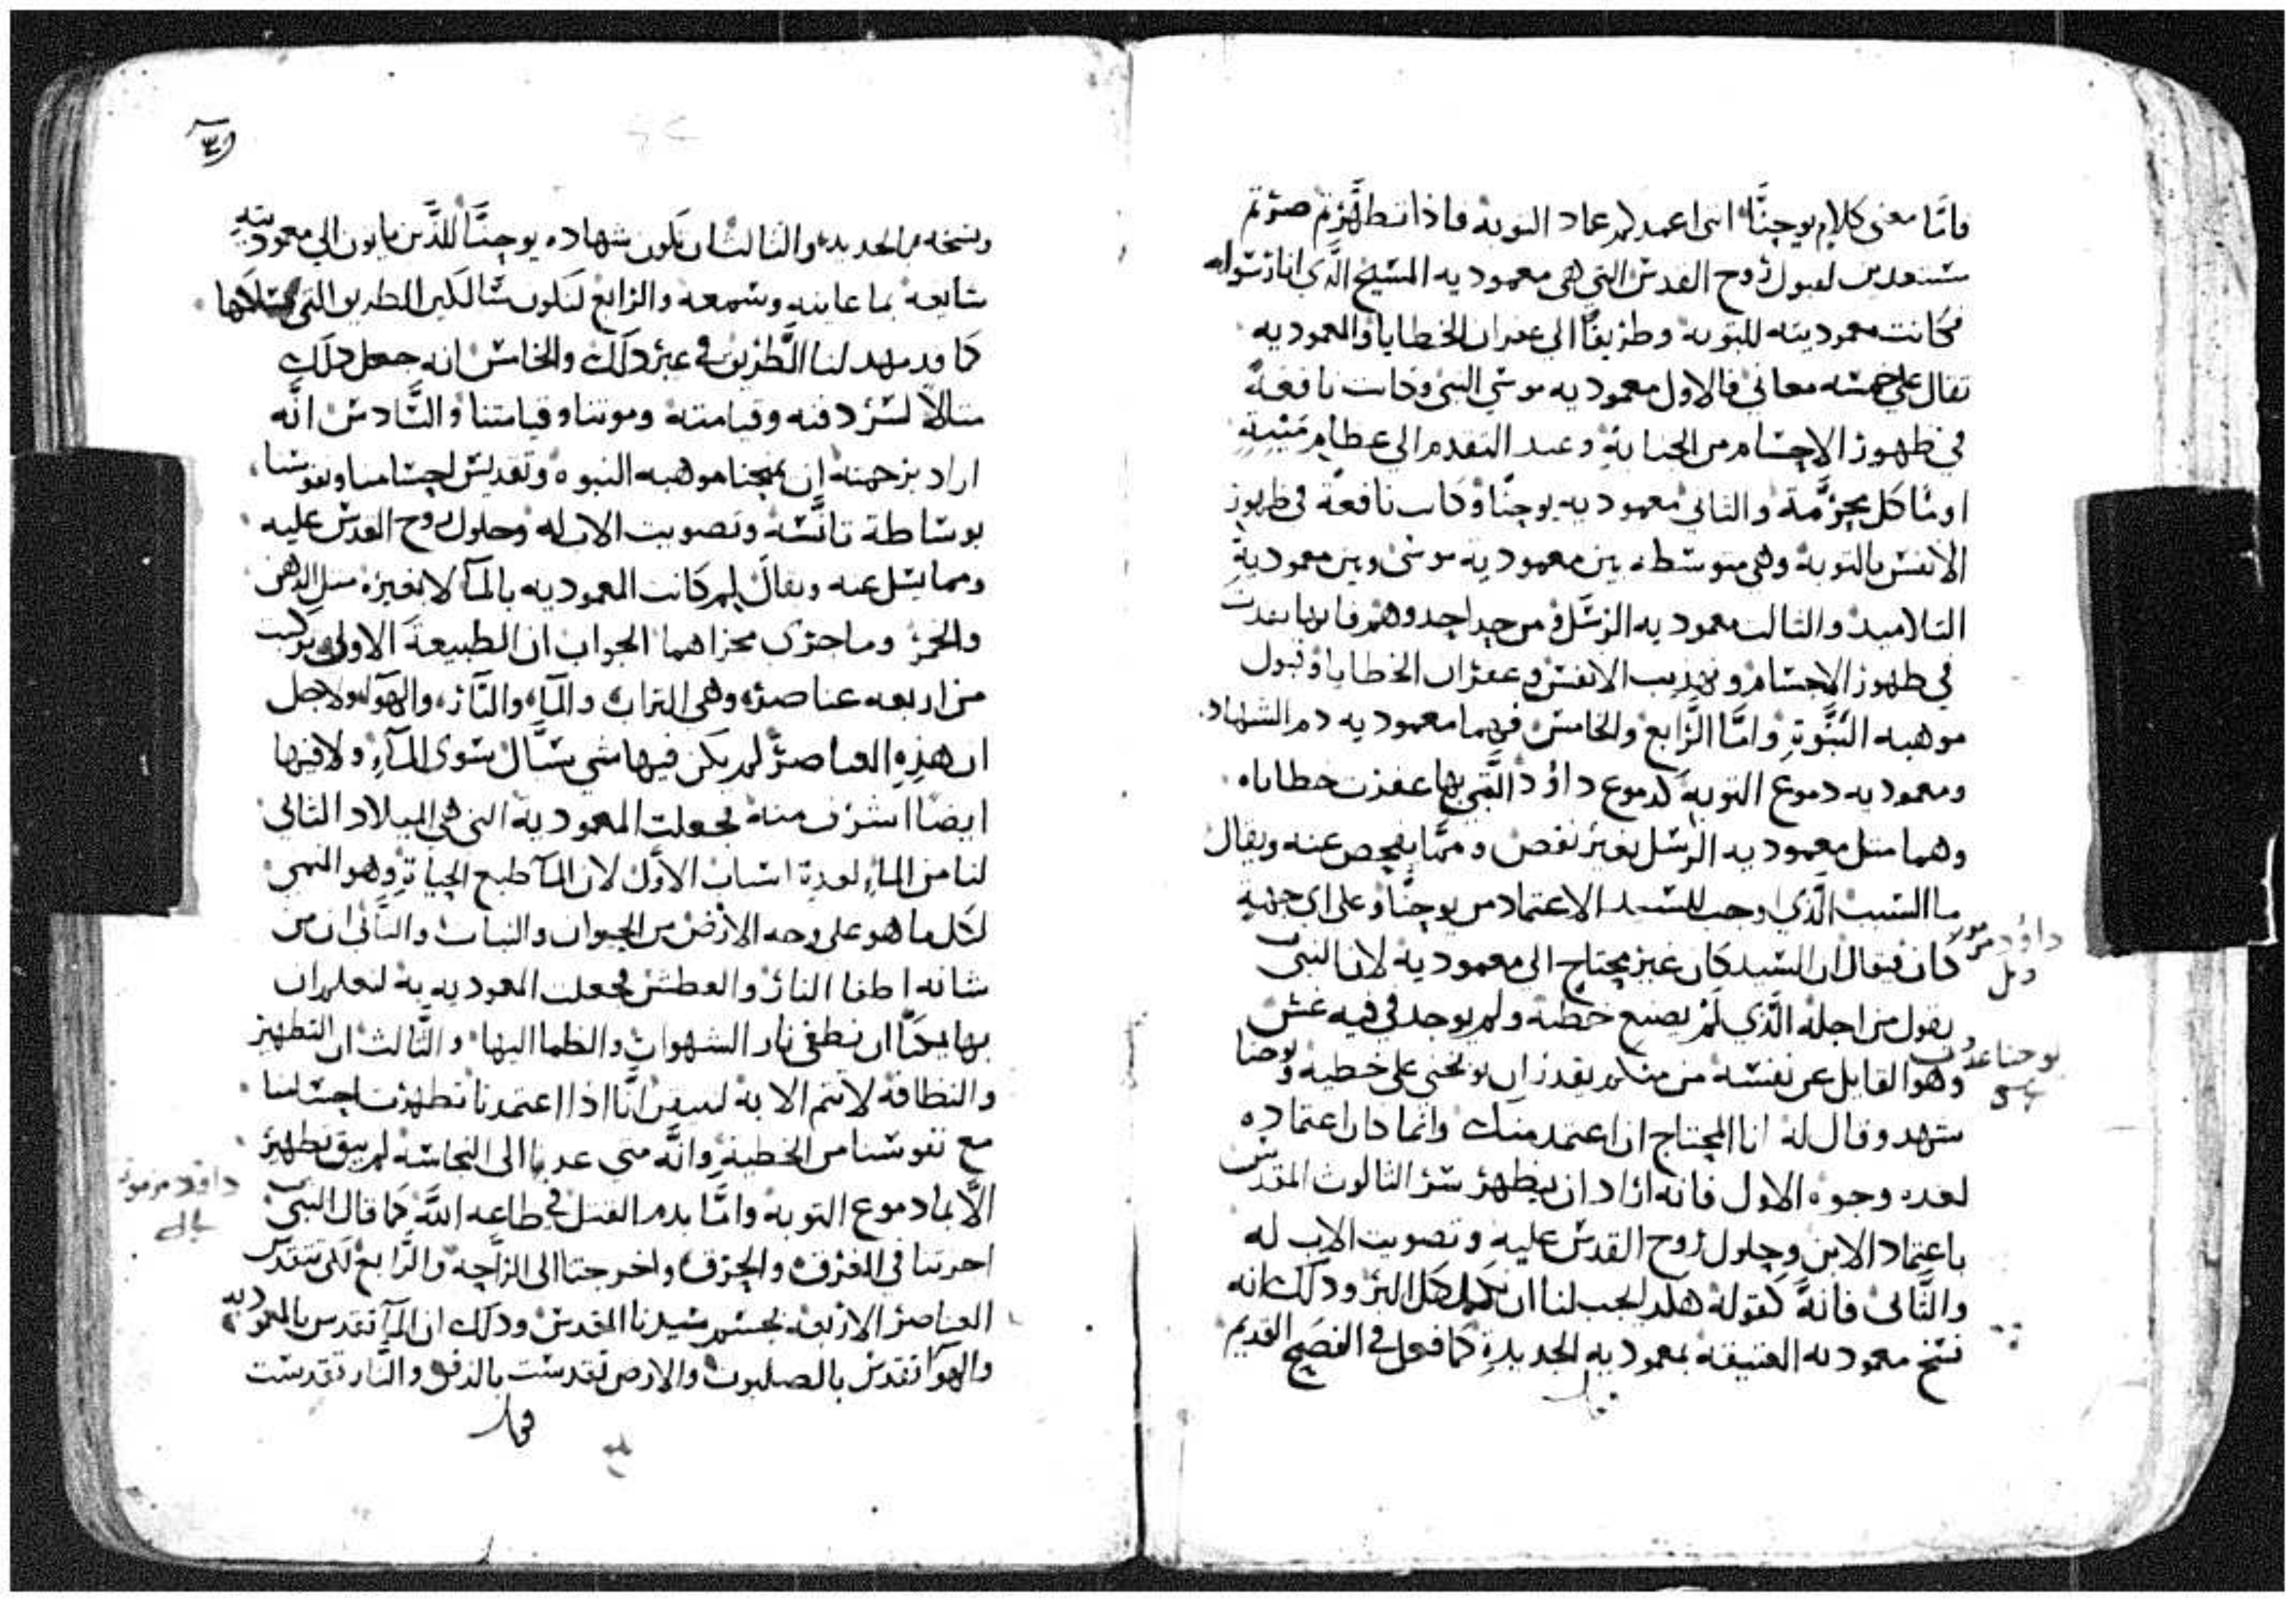 فامّا معنى كلام يوحنّا انى اعمدكم عماد التوبه فاذا تطهّرتم صرتم
مستعدين لقبول روح القدس التي هي معموديه المسيح الّذي انا رسوله
فكانت معموديته للتوبه وطريقًا الى غفران الخطايا والمعموديه
تقال على خمسه معاني فالاول معموديه موسي النبي وكانت نافعةً
في طهور الاجسام من الجنابة وعند التقدم الى عظام ميتة
او مأكل محرّمة والثاني معموديه يوحنّا وكانت نافعة في طهور
الانفس بالتوبة وهي متوسطه بين معمودية موسى وبين معمودية
التلاميذ والثالث معموديه الرسل فانها نفذت
في طهور الاجسام وتهذيب الانفس وغفران الخطايا وقبول
موهبه النبّوة وامّا الرّابع والخامس فهما معموديه دم الشهاده
ومعموديه دموع التوبة كدموع داؤد الّتي بها غفرت خطاياه
وهما مثل معموديه الرسل بغير نقص وممّا يفحص عنه ويقال
ما السبب الّذي اوجب للسيد الاعتماد من يوحنّا وعلى اي جهة
كان فيقال ان السيد كان غير محتاج الى معمودية لان النبي
يقول من اجلة الّذي لمْ يصنع خطية ولم يوجد في فيه غش
وهو القايل عن نفسه من منكم يقدر ان يوبخني على خطيه ويوحنا
شهد وقال لة انا المحتاج ان اعتمد منك وانما كان اعتماده
لعده وجوه الاول فانه اراد ان يظهر سرّ الثالوث المقدس
باعتماد الابن وحلول روح القدس عليه وتصويت الاب له
والثّاني فانهّ كقولة هكذا يجب لنا ان نكمل كل البر وذلك انه
نسخ معموديه العتيقة بمعموديه الجديدة كما فعل في الفصح القديم
داؤد مزمور
يوحنا
ونسخه بالجديد والثالث ان تكون شهاده يوحنّا للّذين ياتون الي معموديته
شايعة بما عاينه وسمعه والرابع لنكون سالكين الطريق التي سلكها
كما قد مهد لنا الّطريق في غير ذلك والخامس انه جعل ذلك
مثالاً لسر دفنه وقيامتة وموتنا وقيامتنا والسّادس انّه
اراد برحمتة ان يمنحنا موهبه النبوه وتقديس اجسامنا ونفوسنا
بوساطة تانّسه وتصويت الاب له وحلول روح القدس عليه
ومما يسل عنه ويقال لِم كانت المعموديه بالمآ لا بغيره مثل الدهن
والخمر وما جرى مجراهما الجواب ان الطبيعة الاولى تركبت
من اربعه عناصر وهي التراب والمآ والنّار والهوآ ولاجل
ان هذِه العناصر لم يكن فيها شي سيّال سوى المآء ولا فيها
ايضًا اشرف منة فجعلت المعمودية التي هي الميلاد الثاني
لنا من الماء لعدة اسباب الاوّل لان المآ طبع الحياة وهو المنمي
لكل ما هو على وجه الارض من الحيوان والنبات والثّاني ان من
شانه اطفا النار والعطش فجعلت المعوديه به لنعلم ان
بها يمكنّا ان نطفي نار الشهوات والظما اليها والثّالث ان التطهير
والنظافة لا تتم الا به لنتيقن انّا اذا اعتمدنا تطهرت اجسامنا
مع نفوسنا من الخطية وانّه متى عدنا الى النجاسه لم يبق تطهير
الاّ بما دموع التوبه وامّا بدم القتل في طاعه اللّه كما قال النبي
اجزتنا في الغرق والحرق واخرجتنا الى الرّاحة والرّابع لكى تتقدس
العناصر الاربعه بجسم سيدنا المقدس وذلك ان المآ تقدس بالمعموديه
والهوآ تقدس بالصلبوت والارض تقدست بالدفن والنّار تقدست
داود مزمور